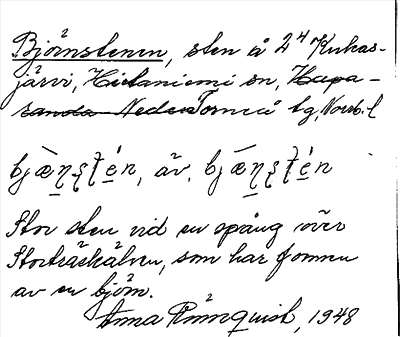 Björnstenen, sten å 2⁴ Kukas-
järvi, Hietaniemi sn, Hapa-
randa Neder Torneå tg, Norrb. l
av.
Stor sten vid en spång över
Storträskälven, som har formen
av en björn.
Anna Rönnquist, 1948